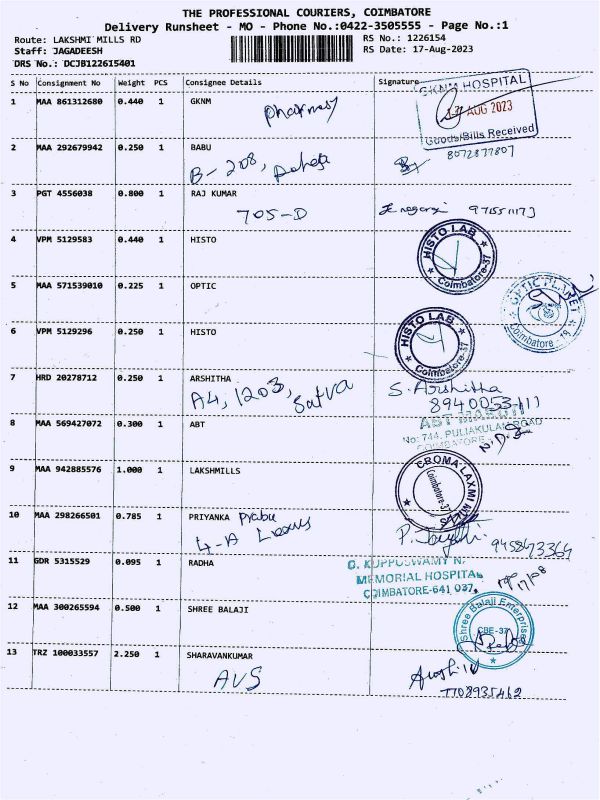 THE PROFESSIONAL COURIERS, COIMBATORE
Delivery Runsheet - MO - Phone No.:0422-3505555 - Page No.:1
Route: LAKSHMI MILLS RD
Staff: JAGADEESH
DRS No.: DCJB122615401
RS No.: 1226154
RS Date: 17-Aug-2023
S No Consignment No Weight PCS Consignee Details Signature
1 MAA 861312680 0.440 1 GKNM
Pharmacy
GKNM HOSPITAL
17 AUG 2023
Goods/Bills Received
2 MAA 292679942 0.250 1 BABU
B-208,
8072877807
3 PGT 4556038 0.800 1 RAJ KUMAR
705-D
4 VPM 5129583 0.440 1 HISTO
HISTO LAB
Coimbatore-37
5 MAA 571539010 0.225 1 OPTIC
OPTIC PLANET
Coimbatore - 19
6 VPM 5129296 0.250 1 HISTO
HISTO LAB
Coimbatore-37
7 HRD 20278712 0.250 1 ARSHITHA
A4, 1203, Satva
S. Arshitha
8 MAA 569427072 0.300 1 ABT
ABT MARUTI
No: 744, PULIAKULAM ROAD
COIMBATORE
9 MAA 942885576 1.000 1 LAKSHMILLS
CROMA LAXMI
Coimbatore-37
10 MAA 298266501 0.785 1 PRIYANKA Prabu
4-A
11 GDR 5315529 0.095 1 RADHA
G. KUPPUSWAMY N.
MEMORIAL HOSPITAL
COIMBATORE-641 037.
12 MAA 300265594 0.500 1 SHREE BALAJI
Shree Balaji Enterprises
CBE-37
13 TRZ 100033557 2.250 1 SHARAVANKUMAR
AVS
7708935462